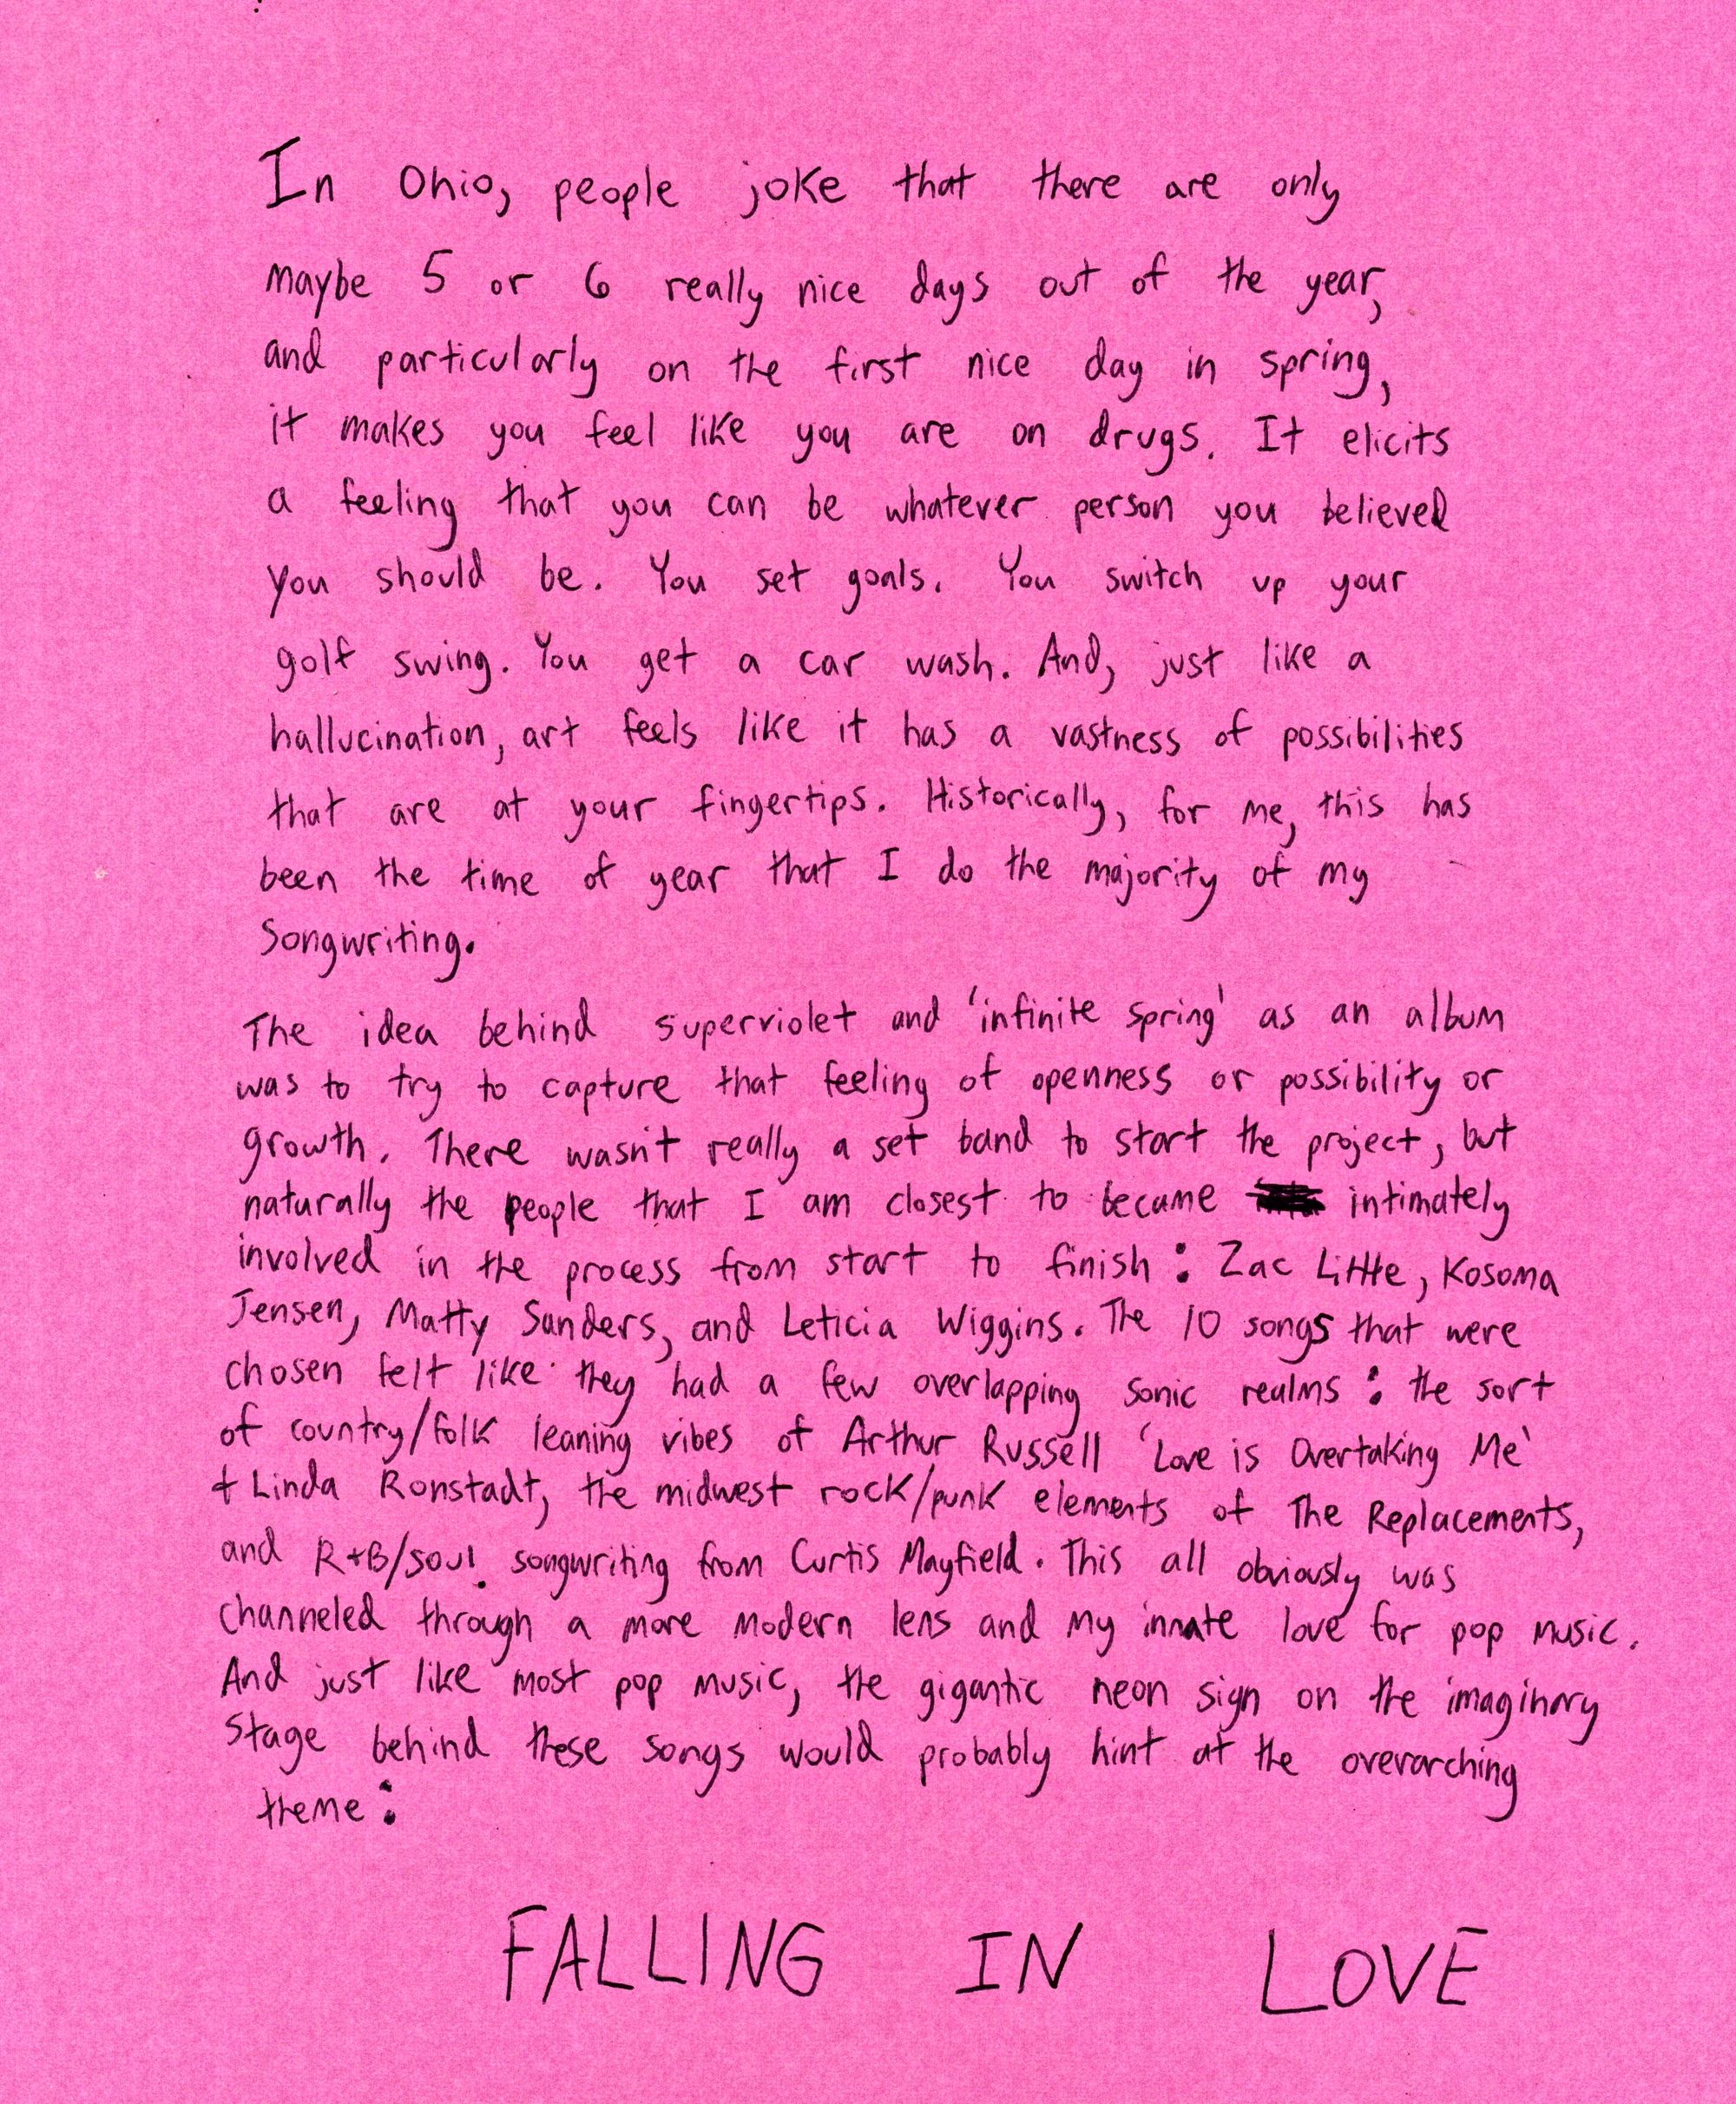 In Ohio, people joke that there are only
maybe 5 or 6 really nice days out of the year,
and particularly on the first nice day in spring,
it makes you feel like you are on drugs. It elicits
a feeling that you can be whatever person you believed
you should be. You set goals. You switch up your
golf swing. You get a car wash. And, just like a
hallucination, art feels like it has a vastness of possibilities
that are at your fingertips. Historically, for me, this has
been the time of year that I do the majority of my
songwriting.
The idea behind superviolet and 'infinite spring' as an album
was to try to capture that feeling of openness or possibility or
growth. There wasn't really a set band to start the project, but
naturally the people that I am closest to became intimately
involved in the process from start to finish: Zac Little, Kosoma
Jensen, Matty Sanders, and Leticia Wiggins. The 10 songs that were
chosen felt like they had a few overlapping sonic realms: the sort
of country/folk leaning vibes of Arthur Russell 'Love is Overtaking Me'
+ Linda Ronstadt, the midwest rock/punk elements of The Replacements,
and R+B/soul songwriting from Curtis Mayfield. This all obviously was
channeled through a more modern lens and my innate love for pop music.
And just like most pop music, the gigantic neon sign on the imaginary
stage behind these songs would probably hint at the overarching
theme:
FALLING IN LOVE